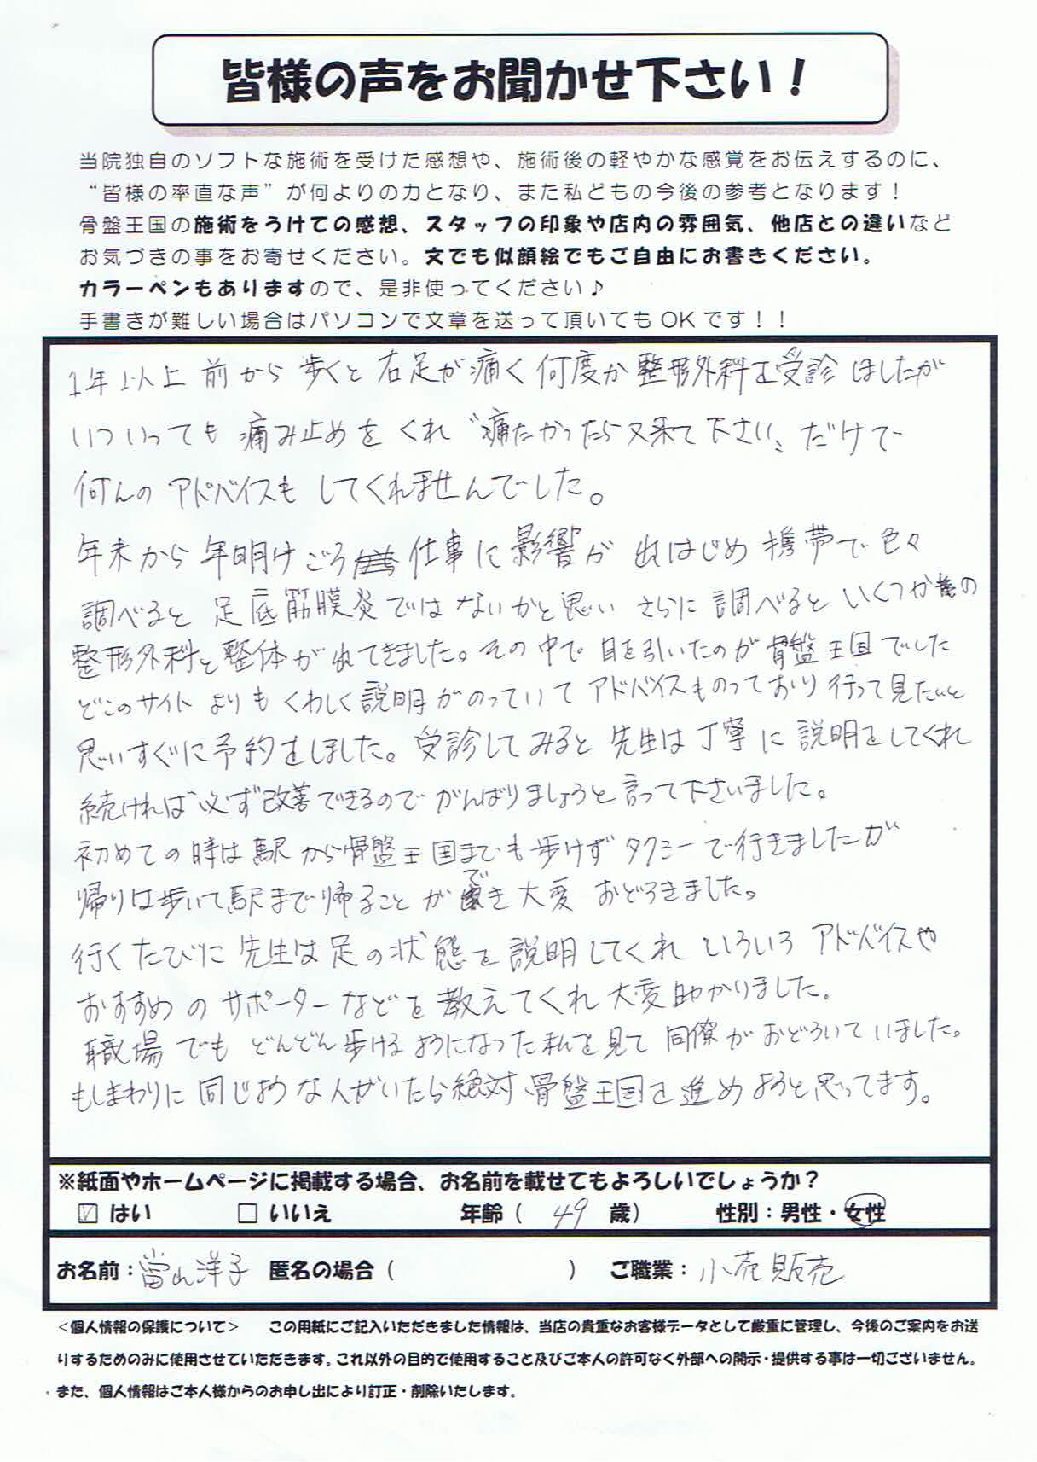 皆様の声をお聞かせ下さい！
当院独自のソフトな施術を受けた感想や、施術後の軽やかな感覚をお伝えするのに、
“皆様の率直な声”が何よりの力となり、また私どもの今後の参考となります！
骨盤王国の施術をうけての感想、スタッフの印象や店内の雰囲気、他店との違いなど
お気づきの事をお寄せください。文でも似顔絵でもご自由にお書きください。
カラーペンもありますので、是非使ってください♪
手書きが難しい場合はパソコンで文章を送って頂いてもOKです！！
1年以上前から歩くと右足が痛く何度か整形外科を受診はしたが
いついっても痛み止めをくれ〝痛たかったら又来て下さい〟だけで
何んのアドバイスもしてくれませんでした。
年末から年明けごろ仕事に影響が出はじめ携帯で色々
調べると足底筋膜炎ではないかと思いさらに調べるといくつかの
整形外科と整体が出てきました。その中で目を引いたのが骨盤王国でした
どこのサイトよりもくわしく説明がのっていてアドバイスものっており行って見たいと
思いすぐに予約をしました。受診してみると先生は丁寧に説明をしてくれ
続ければ必ず改善できるのでがんばりましょうと言って下さいました。
初めての時は駅から骨盤王国までも歩けずタクシーで行きましたが
帰りは歩いて駅まで帰ることができ大変おどろきました。
行くたびに先生は足の状態を説明してくれいろいろアドバイスや
おすすめのサポーターなどを教えてくれ大変助かりました。
職場でもどんどん歩けるようになった私を見て同僚がおどろいていました。
もしまわりに同じような人がいたら絶対骨盤王国を進めようと思ってます。
※紙面やホームページに掲載する場合、お名前を載せてもよろしいでしょうか？
☑ はい □ いいえ 年齢（ 49 歳） 性別：男性・女性
お名前：當山洋子 匿名の場合（ ） ご職業：小売販売
＜個人情報の保護について＞ この用紙にご記入いただきました情報は、当店の貴重なお客様データとして厳重に管理し、今後のご案内をお送
りするためのみに使用させていただきます。これ以外の目的で使用すること及びご本人の許可なく外部への開示・提供する事は一切ございません。
また、個人情報はご本人様からのお申し出により訂正・削除いたします。